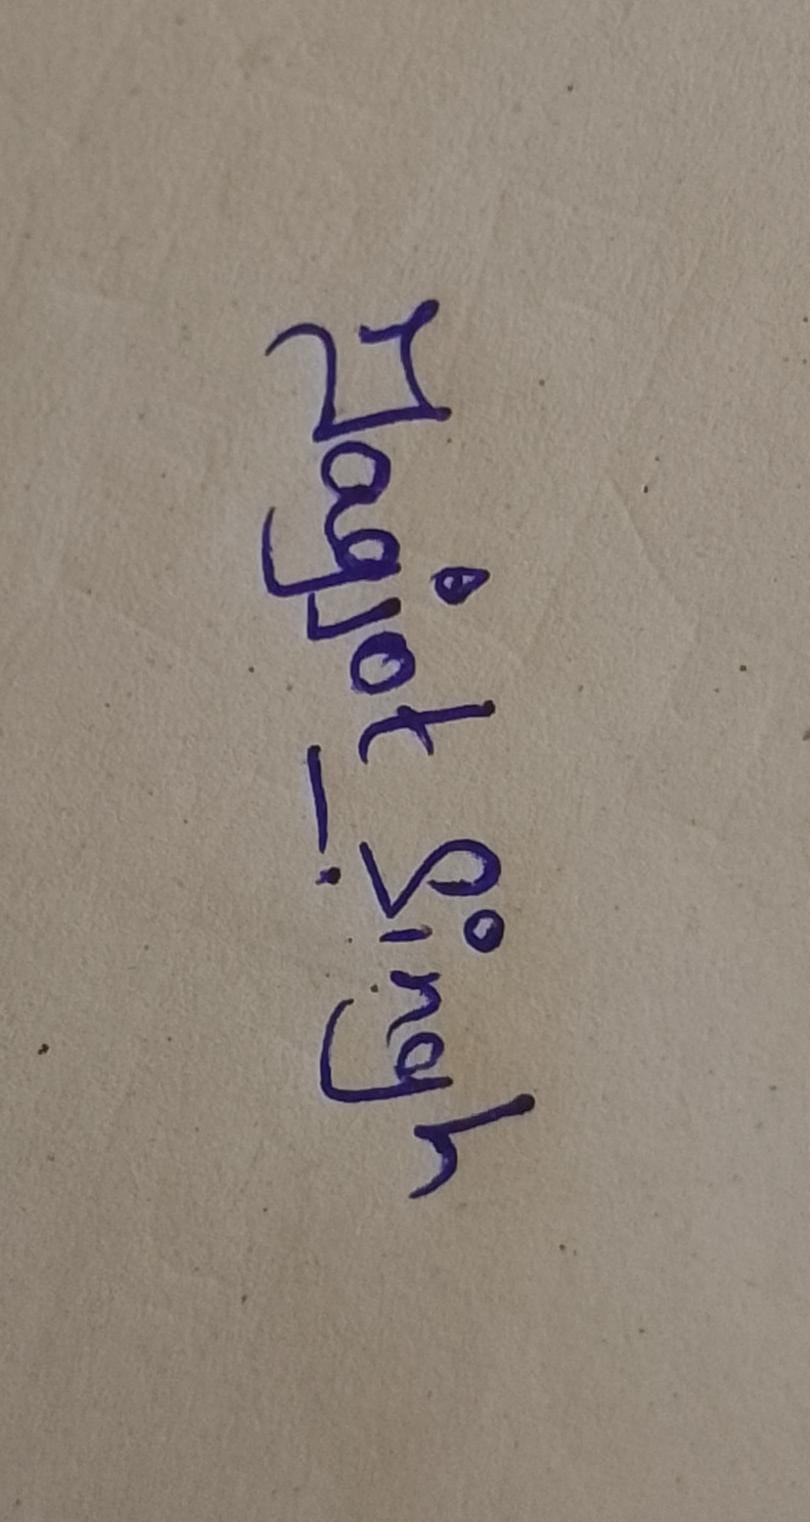 Jagjot Singh